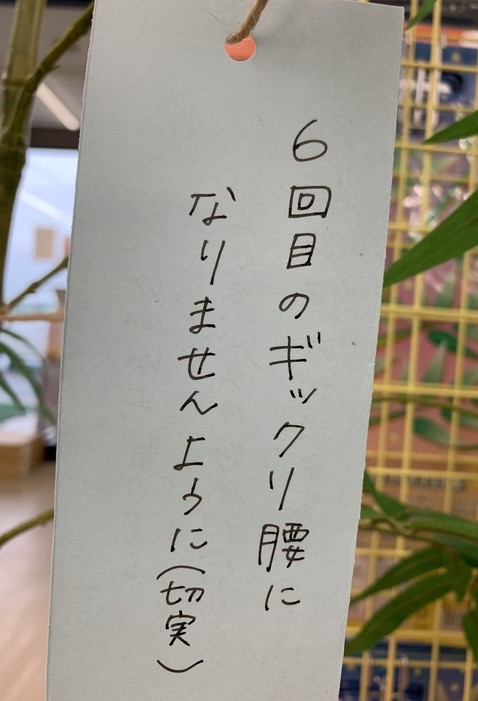 6回目のギックリ腰に
なりませんように(切実)